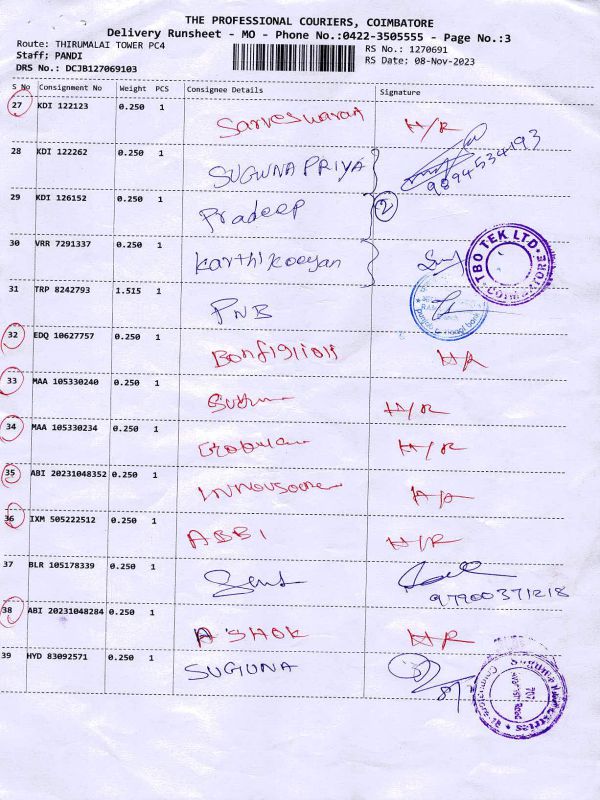 THE PROFESSIONAL COURIERS, COIMBATORE
Delivery Runsheet - MO - Phone No.:0422-3505555 - Page No.:3
Route: THIRUMALAI TOWER PC4
RS No.: 1270691
Staff; PANDI
RS Date: 08-Nov-2023
DRS No.: DCJB127069103
S No Consignment No Weight PCS Consignee Details Signature
27 KDI 122123 0.250 1 Sarveswaran H/R
28 KDI 122262 0.250 1 SUGUNA PRIYA 9894534193
29 KDI 126152 0.250 1 Pradeep 2
30 VRR 7291337 0.250 1 Karthikeeyan
TBO TEK LTD.
31 TRP 8242793 1.515 1 PNB
32 EDQ 10627757 0.250 1 Bonfiglioli H/R
33 MAA 105330240 0.250 1 H/R
34 MAA 105330234 0.250 1 H/R
35 ABI 20231048352 0.250 1
36 IXM 505222512 0.250 1 ABBI H/R
37 BLR 105178339 0.250 1 97900371218
38 ABI 20231048284 0.250 1 ASHOK H/R
39 HYD 83092571 0.250 1 SUGUNA